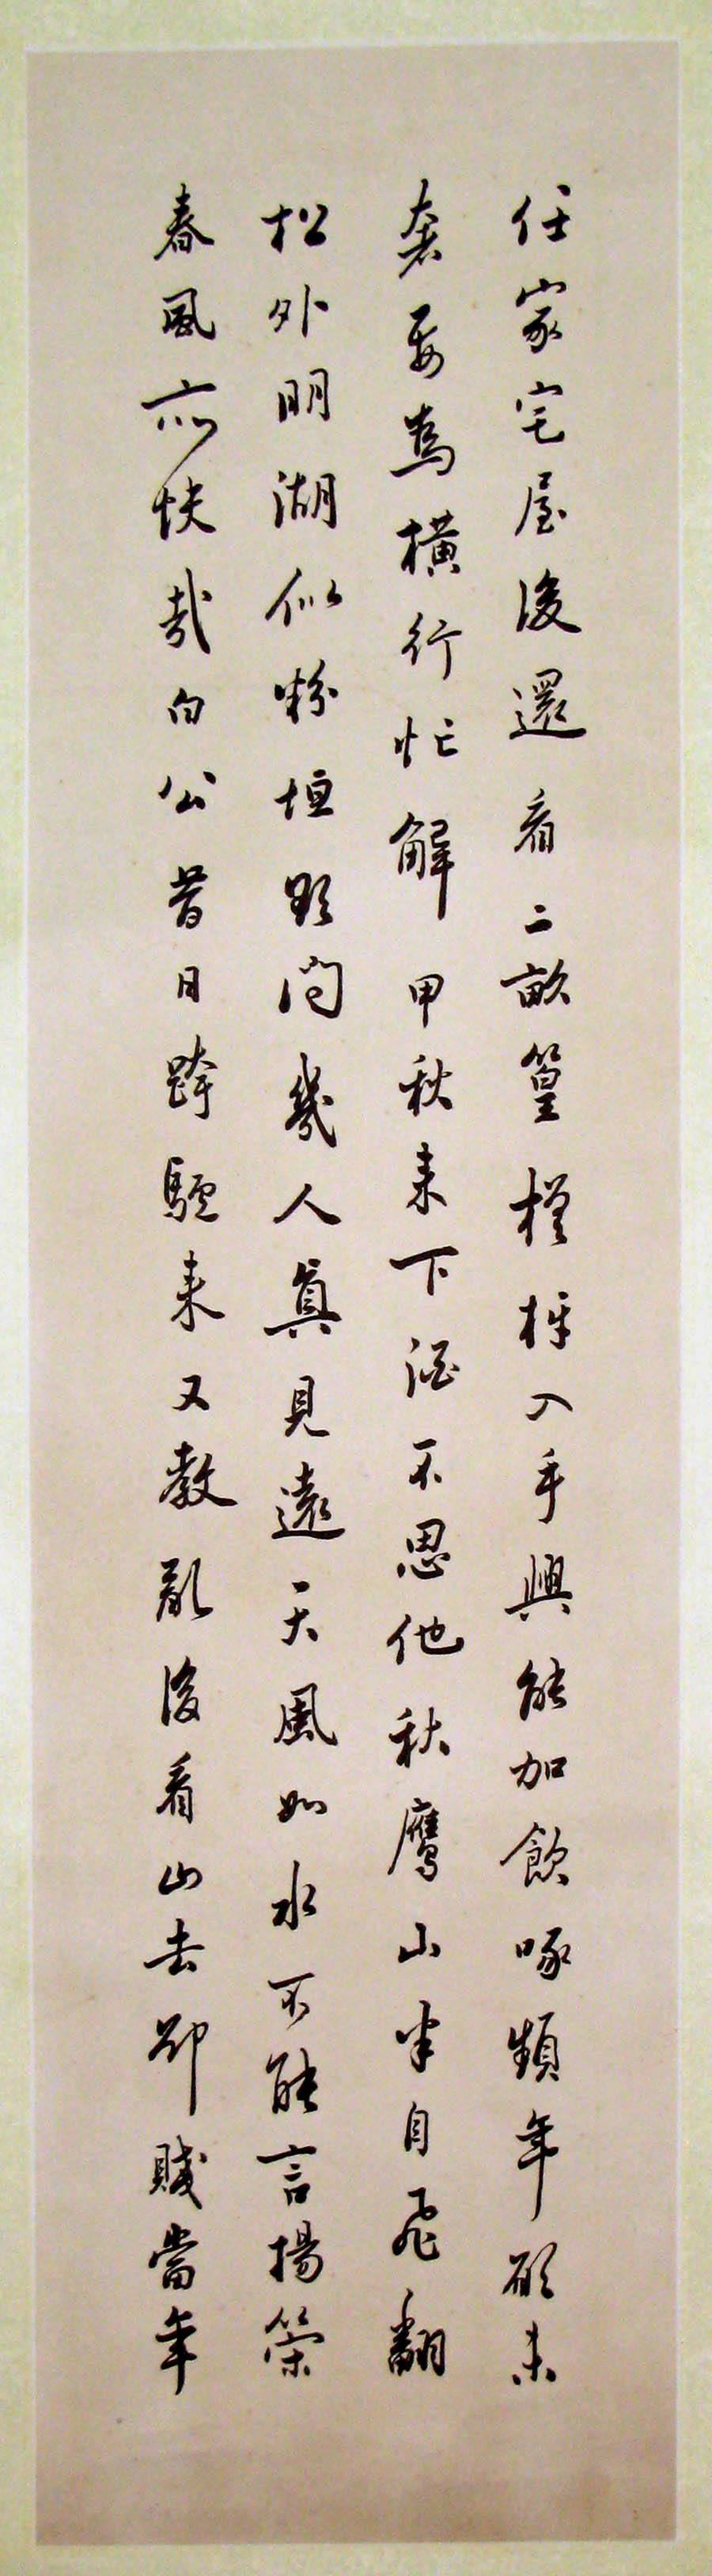 任家宅屋後還看二畝篁楥枒入手興能加飲啄頻年願未
奢要為橫行忙解甲秋來下酒不思他秋鷹山半自飛翻
松外明湖似粉垣影問幾人真見遠天風如水不能言揚策
春風亦快哉白公昔日跨驢來又教亂後看山去即賤當年